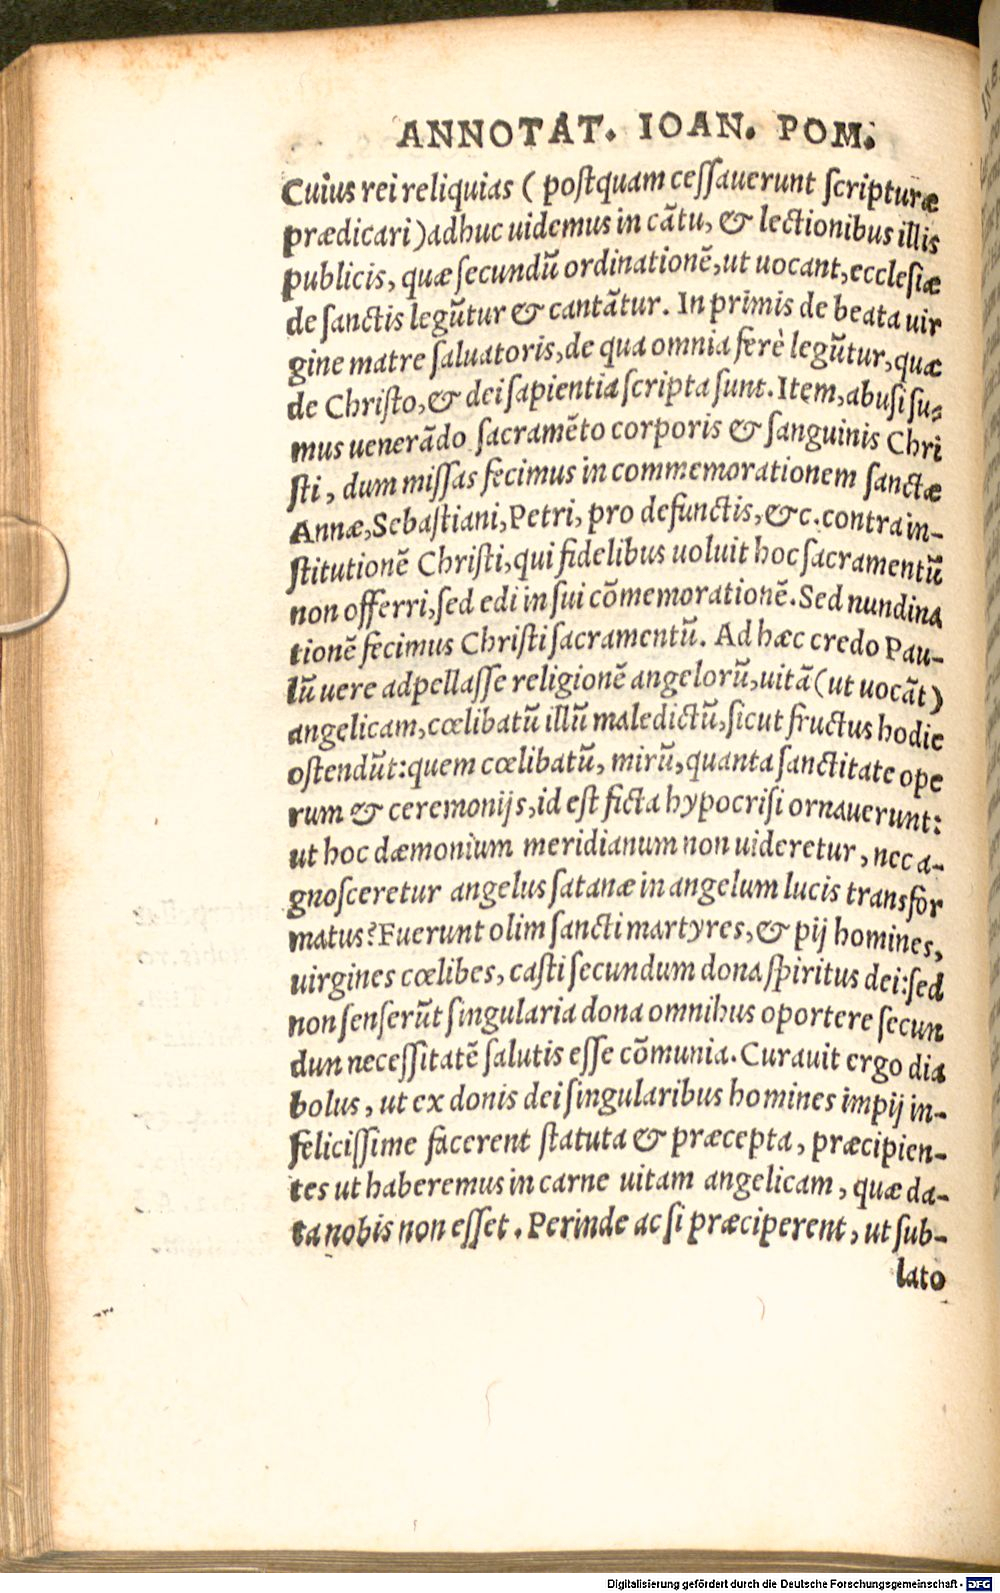 ANNOTAT. IOAN. POM.
Cuius rei reliquias ( postquam cessauerunt scripturæ
prædicari ) adhuc uidemus in cãtu, & lectionibus illis
publicis, quæ secundũ ordinationẽ, ut uocant, ecclesiæ
de sanctis legũtur & cantãtur. In primis de beata uir
gine matre saluatoris, de qua omnia ferè legũtur, quæ
de Christo, & dei sapientia scripta sunt. Item, abusi su-
mus uenerãdo sacramẽto corporis & sanguinis Chri
sti, dum missas fecimus in commemorationem sanctæ
Annæ, Sebastiani, Petri, pro defunctis, &c. contra in-
stitutionẽ Christi, qui fidelibus uoluit hoc sacramentũ
non offerri, sed edi in sui cõmemorationẽ. Sed nundina
tionẽ fecimus Christi sacramentũ. Ad hæc credo Pau-
lũ uere adpellasse religionẽ angelorũ, uitã ( ut uocãt )
angelicam, cœlibatũ illũ maledictũ, sicut fructus hodie
ostendũt: quem cœlibatũ, mirũ, quanta sanctitate ope
rum & ceremonijs, id est ficta hypocrisi ornauerunt:
ut hoc dæmonium meridianum non uideretur, nec a-
gnosceretur angelus satanæ in angelum lucis transfor
matus? Fuerunt olim sancti martyres, & pij homines,
uirgines cœlibes, casti secundum dona spiritus dei: sed
non senserũt singularia dona omnibus oportere secun
dun necessitatẽ salutis esse cõmunia. Curauit ergo dia
bolus, ut ex donis dei singularibus homines impij in-
felicissime facerent statuta & præcepta, præcipien-
tes ut haberemus in carne uitam angelicam, quæ da-
ta nobis non esset. Perinde ac si præciperent, ut sub-
lato
Digitalisierung gefördert durch die Deutsche Forschungsgemeinschaft - DFG